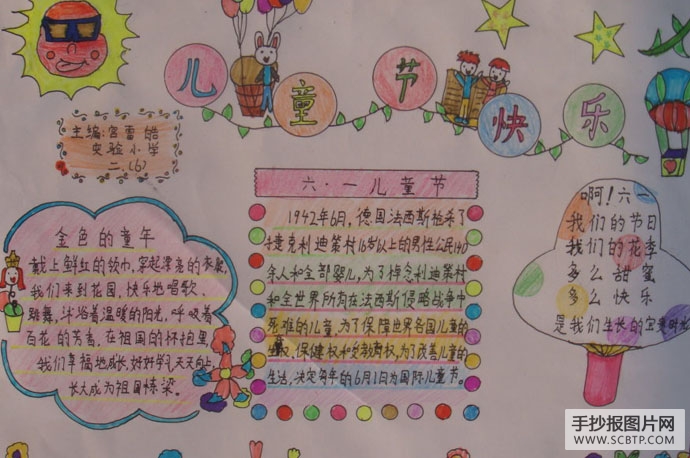 儿童节快乐
主编:宫雷皓
实验小学
二.(6)
金色的童年
戴上鲜红的领巾,穿起漂亮的衣裳,
我们来到花园,快乐地唱歌
跳舞,沐浴着温暖的阳光,呼吸着
百花的芳香,在祖国的怀抱里,
我们幸福地成长,好好学习天天向上,
长大成为祖国栋梁。
六·一儿童节
1942年6月,德国法西斯枪杀了
捷克利迪策村16岁以上的男性公民140
余人和全部婴儿,为了悼念利迪策村
和全世界所有在法西斯侵略战争中
死难的儿童,为了保障世界各国儿童的
权,保健权和受教育权,为了改善儿童的
生活,决定每年的6月1日为国际儿童节。
啊!六一
我们的节日
我们的花季
多么甜蜜
多么快乐
是我们生长的宝贵时光
手抄报图片网
WWW.SCBTP.COM